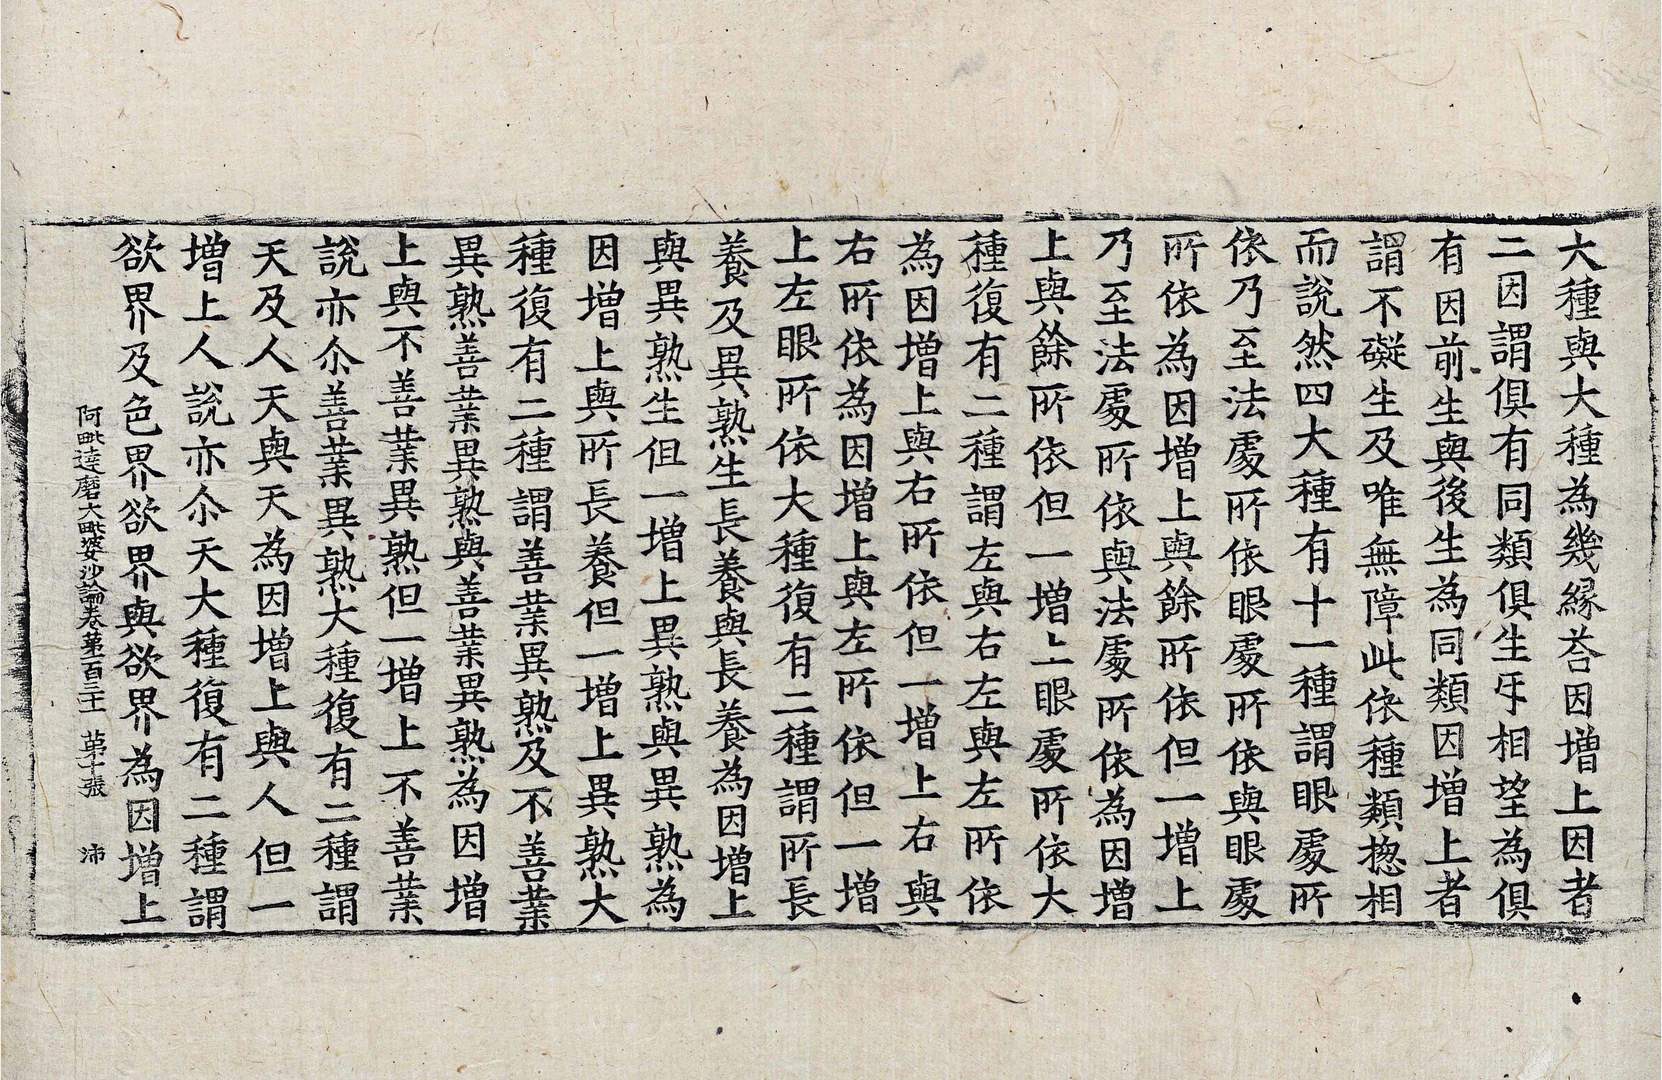 大種與大種為幾緣荅因增上因者
二因謂俱有同類俱生㸦相望為俱
有因前生與後生為同類因增上者
謂不礙生及唯無障此依種類揔相
而說然四大種有十一種謂眼處所
依乃至法處所依眼處所依與眼處
所依為因增上與餘所依但一增上
乃至法處所依與法處所依為因增
上與餘所依但一增上眼處所依大
種復有二種謂左與右左與左所依
為因增上與右所依但一增上右與
右所依為因增上與左所依但一增
上左眼所依大種復有二種謂所長
養及異熟生長養與長養為因增上
與異熟生但一增上異熟與異熟為
因增上與所長養但一增上異熟大
種復有二種謂善業異熟及不善業
異熟善業異熟與善業異熟為因增
上與不善業異熟但一增上不善業
說亦尒善業異熟大種復有二種謂
天及人天與天為因增上與人但一
增上人說亦尒天大種復有二種謂
欲界及色界欲界與欲界為因增上
阿毗達磨大毗婆沙論卷第一百三十一 第十張 沛